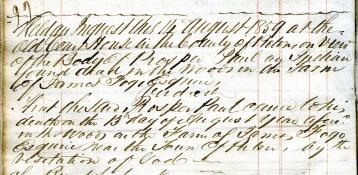 Held an Inquest this 14 August 1859 at the
old Court House in the County of Pictou, on View
of the Body of Prosper Paul an Indian
found dead in the Woods on the Farm
of James Fogo Esquire
Verdict
That the said Prosper Paul came to his
death on the 13th day of August Year afores
in the Woods on the Farm of James Fogo
Esquire near the Town of Pictou by the
Visitation of God